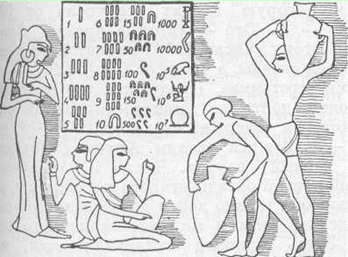 1 6 15 1000
2 7 50 10000
3 8 100 10⁵
4 9 150 10⁶
5 10 500 10⁷